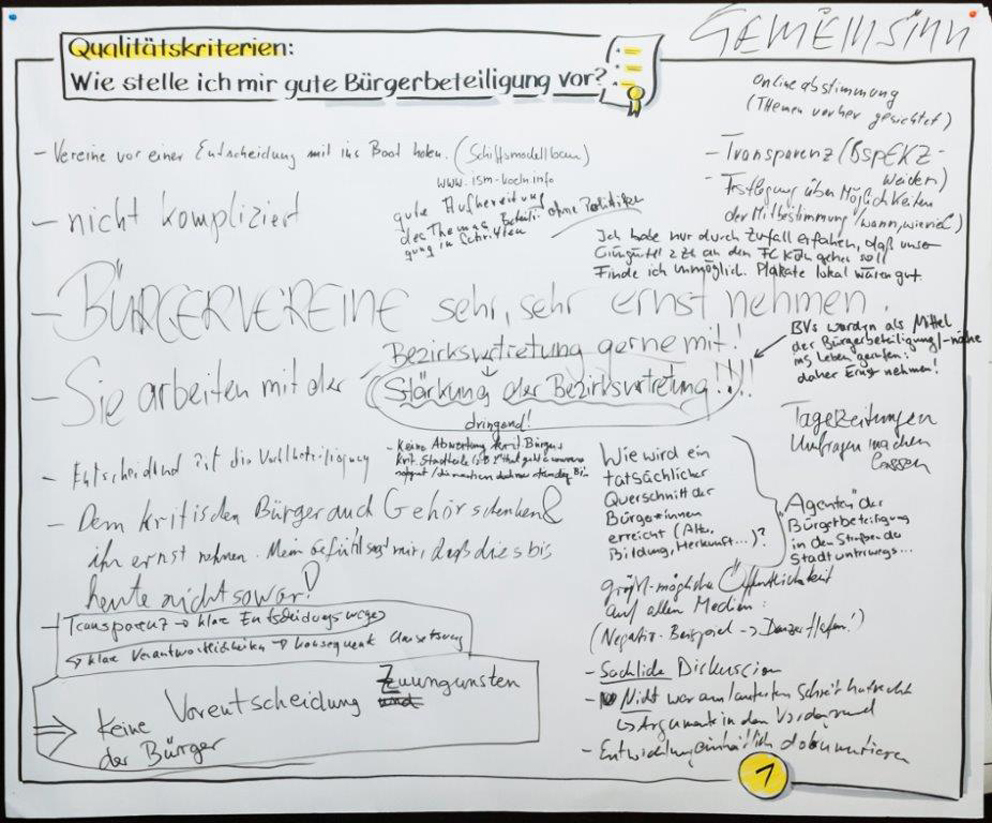 GEMEINSINN
Qualitätskriterien:
Wie stelle ich mir gute Bürgerbeteiligung vor?
Onlineabstimmung
(Themen vorher gesichtet)
- Vereine vor einer Entscheidung mit ins Boot holen. (Schiffsmodellbau)
www.ism-koeln.info
- nicht kompliziert
gute Aufbereitung
des Themas Beteili- ohne Politiker
gung in Schriften
- Transparenz (Bsp EKZ-
Weiden)
- Festlegung über Möglichkeiten
der Mitbestimmung (wann, wieviel)
Ich habe nur durch Zufall erfahren, daß unser
Grüngürtel z.Zt. an den FC Köln gehen soll
Finde ich unmöglich. Plakate lokal wären gut.
- BÜRGERVEREINE sehr, sehr ernst nehmen.
BVs wurden als Mittel
der Bürgerbeteiligung/-nähe
ins Leben gerufen:
daher Ernst nehmen!
- Sie arbeiten mit der Bezirksvertretung gerne mit!
Stärkung der Bezirksvertretung!!!!
dringend!
Tageszeitungen
Umfragen machen
lassen
- Entscheidend ist die
- Keine Abwertung krit. Bürger
krit. Stadtteile
- Dem kritischen Bürger auch Gehör schenken &
ihn ernst nehmen. Mein Gefühl sagt mir, daß dies bis
heute nicht so war!
Wie wird ein
tatsächlicher
Querschnitt der
Bürger*innen
erreicht (Alter,
Bildung, Herkunft...)?
"Agenten" der
Bürgerbeteiligung
in den Straßen der
Stadt unterwegs...
größt-mögliche Öffentlichkeit
auf allen Medien.
(Negativ-Beispiel -> Deutzer Hafen!)
- Transparenz → klare Entscheidungswege
↳ klare Verantwortlichkeiten → konsequent Umsetzung
⇒ Keine Vorentscheidung Zuungunsten
der Bürger
- Sachliche Diskussion
- Nicht wer am lautesten schreit hat recht
↳ Argumente in den Vordergrund
- Entwicklung einheitlich dokumentieren
1